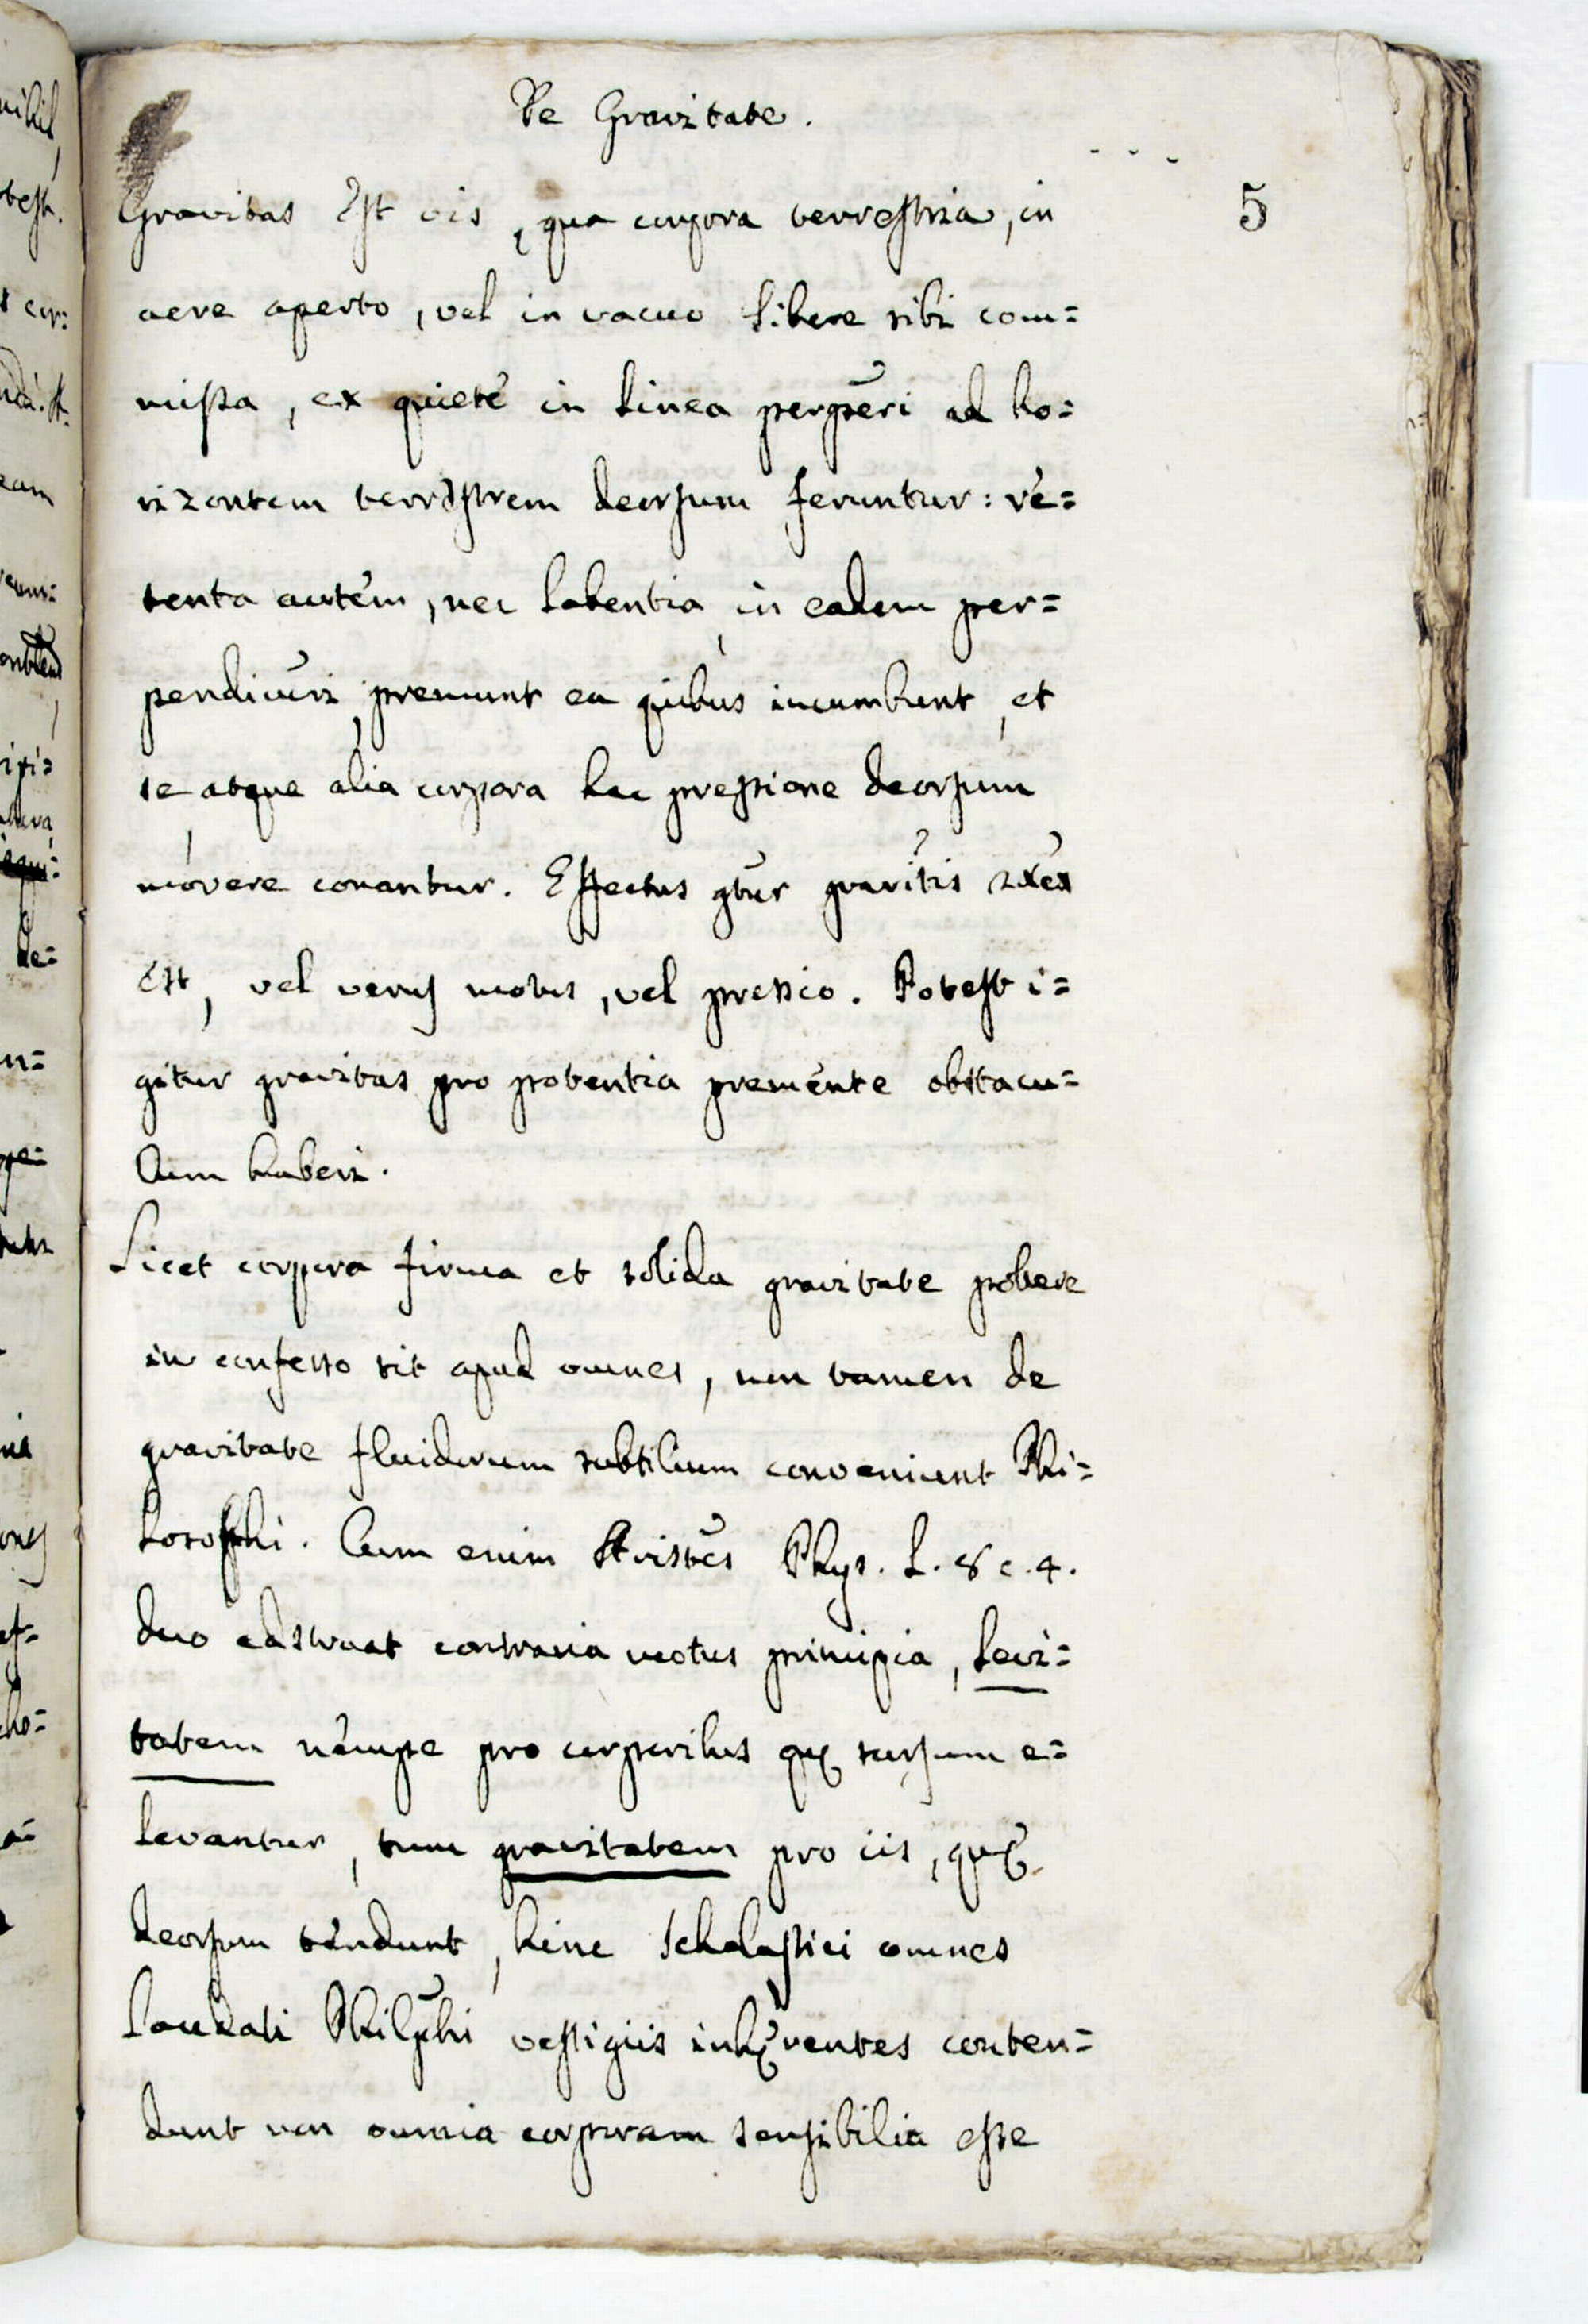 De Gravitate.
5
Gravitas Est vis, qua corpora terrestria, in
aere aperto, vel in vacuo libere sibi com=
missa, ex quiete in linea perpēri ad ho=
rizontem terrestrem deorsum feruntur: re=
tenta autem, nec labentia, in eadem per=
pendicūri, premunt ea quibus incumbunt, et
se atque alia corpora hac pressione deorsum
movere conantur. Effectus gtūr gravitīs
Est, vel verus motus, vel pressio. Potest i=
gitur gravitas pro potentia premente obstacu=
lum haberi.
Licet corpora firma et solida gravitate pollere
in confesso sit apud omnes, non tamen de
gravitate fluidorum subtilium conveniunt Phi=
losophi. Cum enim Aristēs Phys. L. 8 c. 4.
duo adstruat contraria motus principia, levi=
tatem nempe pro corporibus quę sursum e=
levantur, tum gravitatem pro iis, quę
deorsum tendunt, hinc Scholastici omnes
laudati Philphi vestigiis inhęrentes conten=
dunt non omnia corporam sensibilia esse